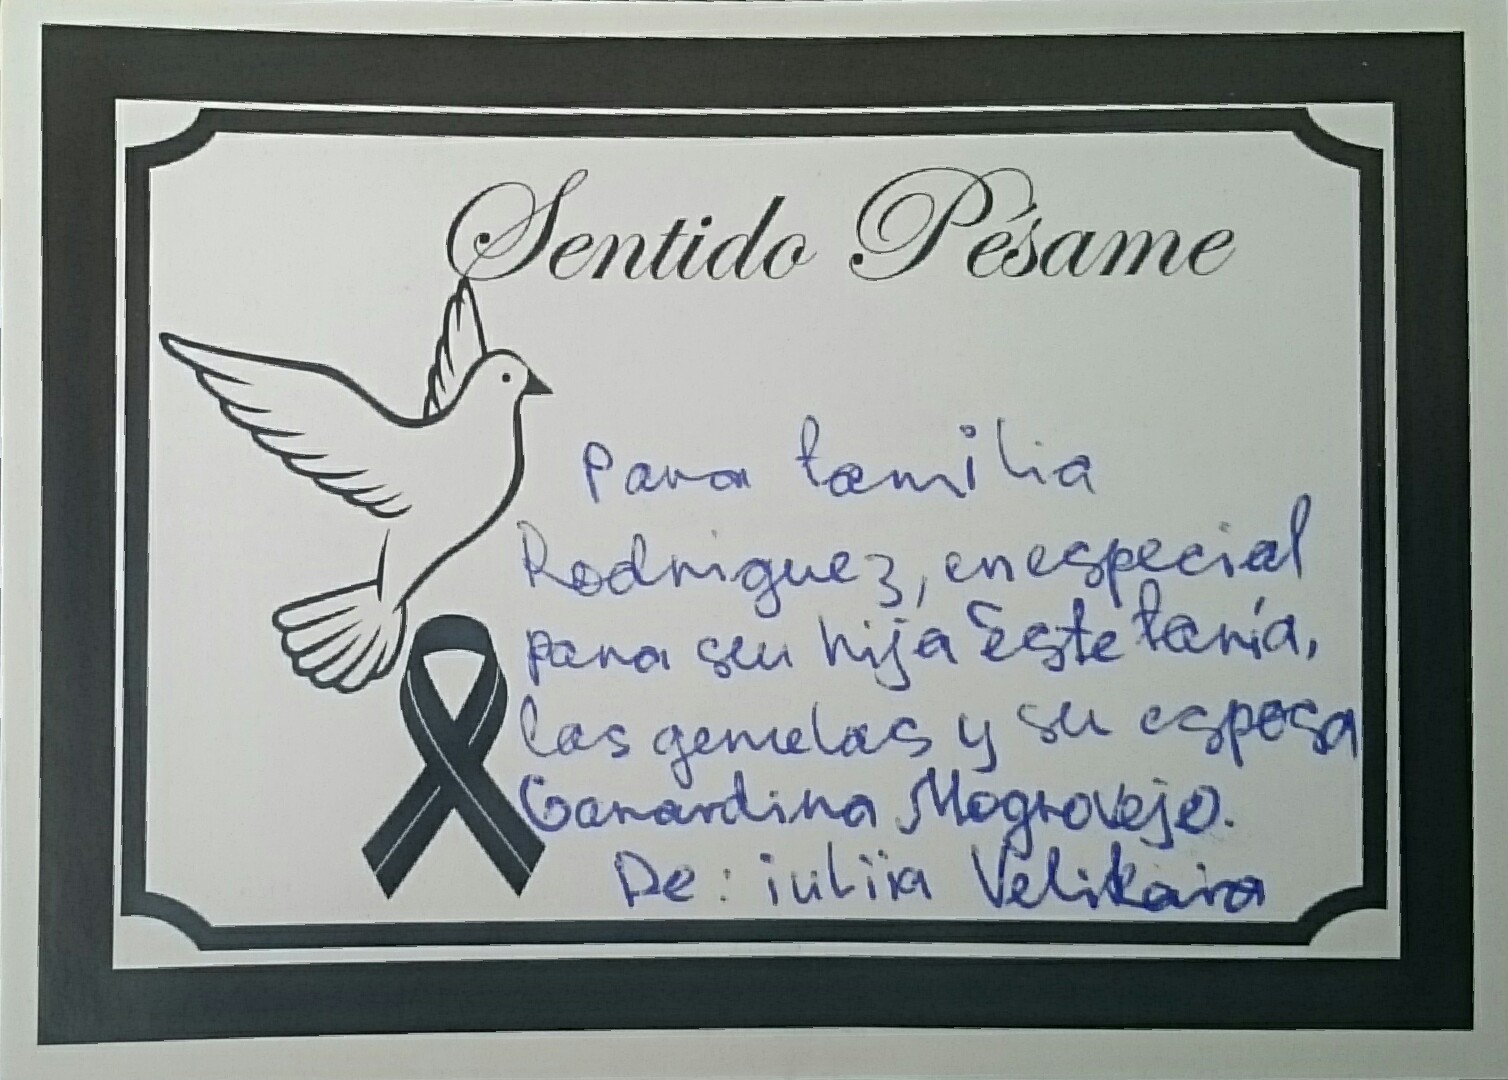 Sentido Pésame
Para familia
Rodriguez, en especial
para su hija Estefanía,
las gemelas y su esposa
Ganardina Mogrovejo.
De: iuliia Velikaia